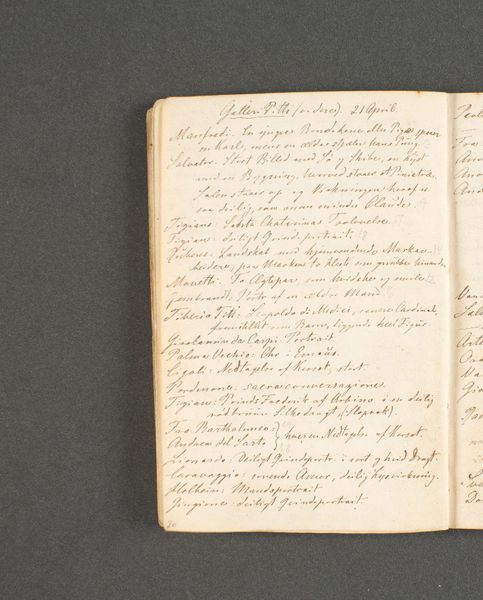 Galleri Pitti (videre). 21 April.
Manfredi: En yngre Bondekone eller Pige spaaer
en Karl, mens en ældre stjæler hans Pung.
Salvator: Stort Billed med Sø og Skibe, en Kyst
med en Bygning, hvorved staaer et Pinietræ.
Solen staaer op og Virkningen heraf er
saa deilig, som om man minder Claude.
Tizians: Sancta Chatarinas Trolovelse.
Tizian: deiligt Qvindeportrait.
Rubens: Landskab med hjemvendende Markar-
beidere; paa Marken to Heste som
Manetti: To
Rembrandt: Portr: af en ældre Mand
Tiberio Titi: Leopoldo di Medici, senere Cardinal,
fremstillet som Barn, liggende heel Figur
Girolamino da Carpi: Portrait
Palma Vechio: Chr. i Emaus.
Cigoli: Nedtagelse af Korset, stort.
Pordenone: sacra conversazione.
Tizian: Prinds Frederik af Urbino i en deilig
rødbruun Silkedragt, (Sloprok).
Fra Bartholomeo: } hver en Nedtagelse af Korset.
Andrea del Sarto.
Lionardo: deiligt Qvindeportr: i sort og hvid Dragt.
Caravaggio: sovende Amor, deilig Lysvirkning.
Holbein: Mandsportrait
Giorgione: deiligt Qvindeportrait.
20